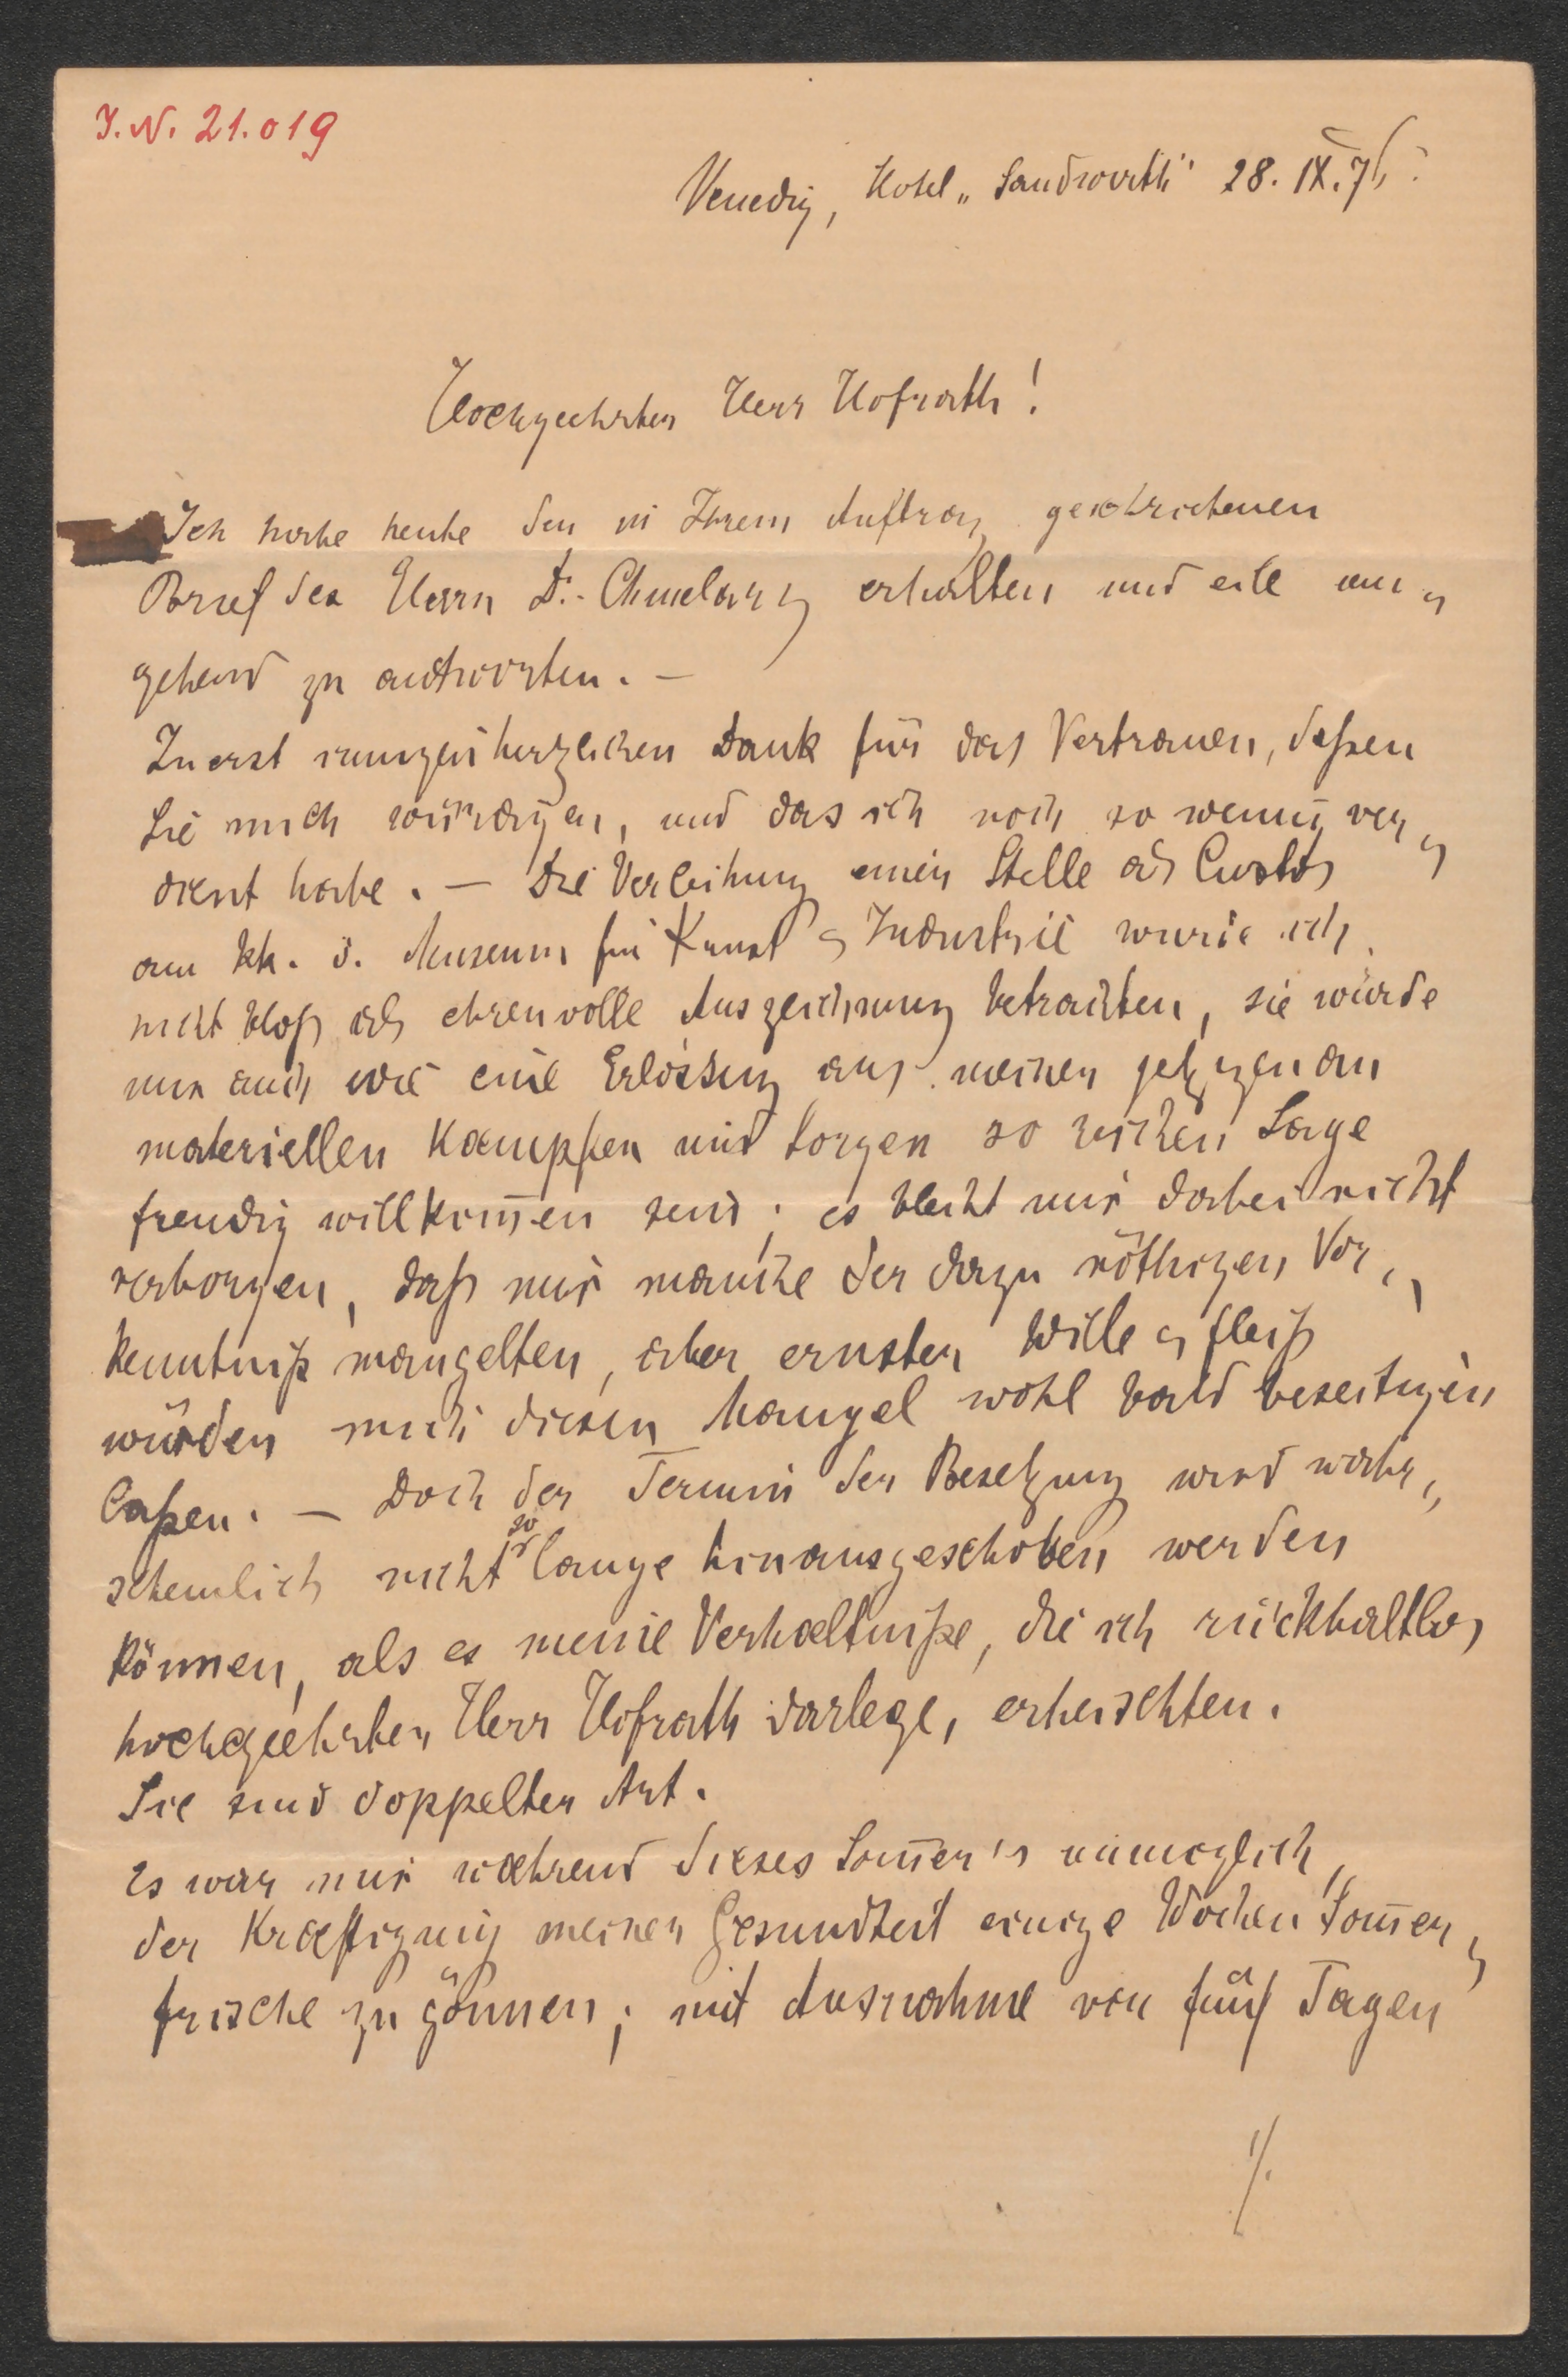 I. N. 21.019
Venedig, Hotel „Sandwirth" 28. IX. 7
Hochgeehrter Herr Hofrath!
Ich habe heute den in Ihrem Auftrag geschriebenen
Brief des Herrn Dr. Chmelarz erhalten und eile um„
gehend zu antworten. —
Zuerst innigen herzlichen Dank für das Vertrauen, deßen
Sie mich würdigen, und das ich noch so wenig ver„
dient habe. — Die Verleihung einer Stelle als Custos
am kk. ö. Museum für Kunst & Industrie würde ich
nicht bloß als ehrenvolle Auszeichnung betrachten, sie würde
mir auch wie eine Erlösung aus meiner jetzigen an
materiellen Kaempfen und Sorgen so reichen Lage
freudig willkom̅en sein; es bleibt mir dabei nicht
verborgen, daß mir manche der dazu nöthigen Vor„
kenntniße mangelten, aber ernster Wille & Fleiß
würden mich diesen Mangel wohl bald beseitigen
laßen. — Doch der Termin der Besetzung wird wahr„
scheinlich nicht so lange hinausgeschoben werden
können, als es meine Verhaeltniße, die ich rückhaltlos
hochgeehrter Herr Hofrath darlege, erheischten.
Sie sind doppelter Art.
Es war mir waehrend dieses Som̅er's unmöglich,
der Kraeftigung meiner Gesundheit einige Wochen Som̅er„
frische zu gönnen; mit Ausnahme von fünf Tagen
./.